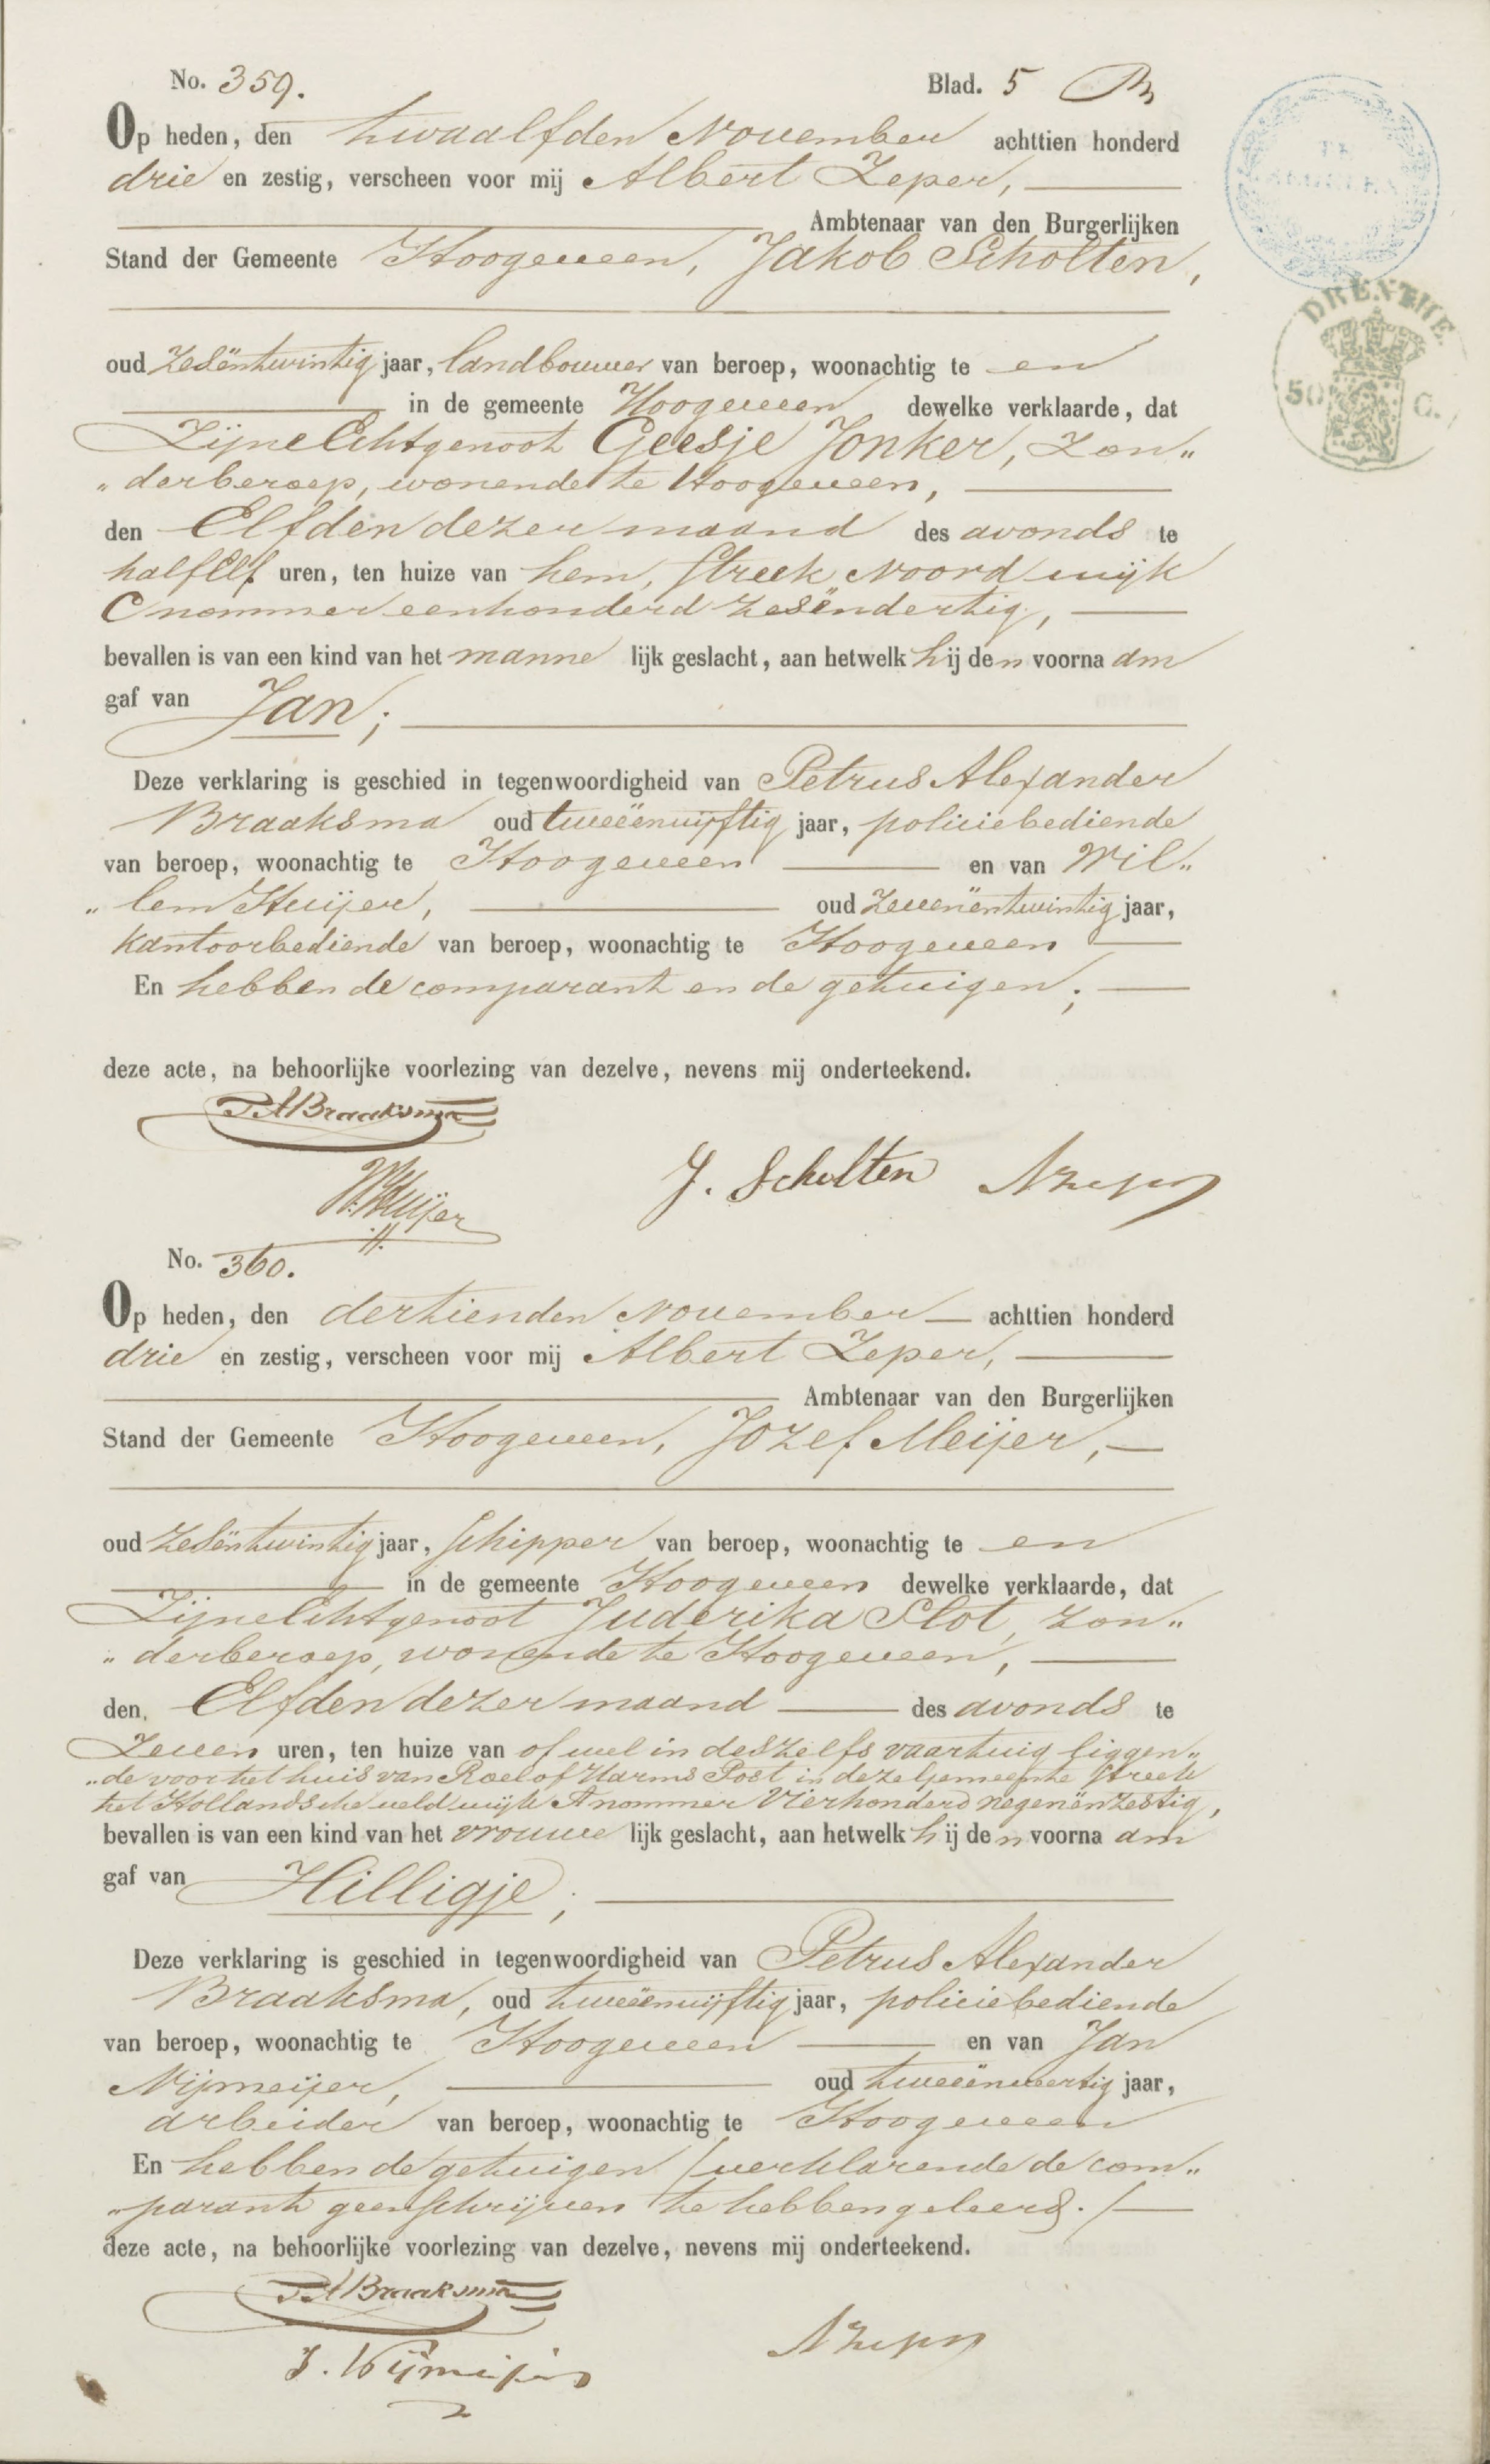 No. 359. Blad. 5
Op heden, den twaalfden November achttien honderd
drie en zestig, verscheen voor mij Albert Zeper,
Ambtenaar van den Burgerlijken
Stand der Gemeente Hoogeveen, Jakob Scholten,
oud zesëntwintig jaar, landbouwer van beroep, woonachtig te en
in de gemeente Hoogeveen dewelke verklaarde, dat
Zijne Echtgenoot Geesje Jonker, zon„
„derberoep, wonende te Hoogeveen,
den Elfden dezer maand des avonds te
half Elf uren, ten huize van hem, streek Noordwijk
C nommer eenhonderd zesëndertig,
bevallen is van een kind van het manne lijk geslacht, aan hetwelk hij den voorna am
gaf van Jan;
Deze verklaring is geschied in tegenwoordigheid van Petrus Alexander
Braaksma oud tweeënvijftig jaar, policiebediende
van beroep, woonachtig te Hoogeveen en van Wil„
„lem Huijer, oud zevenëntwintig jaar,
kantoorbediende van beroep, woonachtig te Hoogeveen
En hebben de comparant en de getuigen;
deze acte, na behoorlijke voorlezing van dezelve, nevens mij onderteekend.
PABraaksma
J. Scholten AZeper
WHuijer
No. 360.
Op heden, den dertienden November achttien honderd
drie en zestig, verscheen voor mij Albert Zeper,
Ambtenaar van den Burgerlijken
Stand der Gemeente Hoogeveen, Jozef Meijer,
oud zesëntwintig jaar, schipper van beroep, woonachtig te en
in de gemeente Hoogeveen dewelke verklaarde, dat
Zijne Echtgenoot Juderika Slot, zon„
„derberoep, wonende te Hoogeveen,
den Elfden dezer maand des avonds te
Zeven uren, ten huize van of wel in deszelfs vaartuig liggen„
„de voor het huis van Roelof Harms Post in deze gemeente streek
het Hollandscheveld wijk A nommer Vierhonderd negenënzestig,
bevallen is van een kind van het vrouwe lijk geslacht, aan hetwelk hij den voorna am
gaf van Hilligje;
Deze verklaring is geschied in tegenwoordigheid van Petrus Alexander
Braaksma, oud tweeënvijftig jaar, policiebediende
van beroep, woonachtig te Hoogeveen en van Jan
Nijmeijer, oud tweeënveertig jaar,
arbeider van beroep, woonachtig te Hoogeveen
En hebben de getuigen /verklarende de com„
„parant geen schrijven te hebben geleerd./
deze acte, na behoorlijke voorlezing van dezelve, nevens mij onderteekend.
PABraaksma
AZeper
J. Nijmeijer
DRENTHE
50 C.